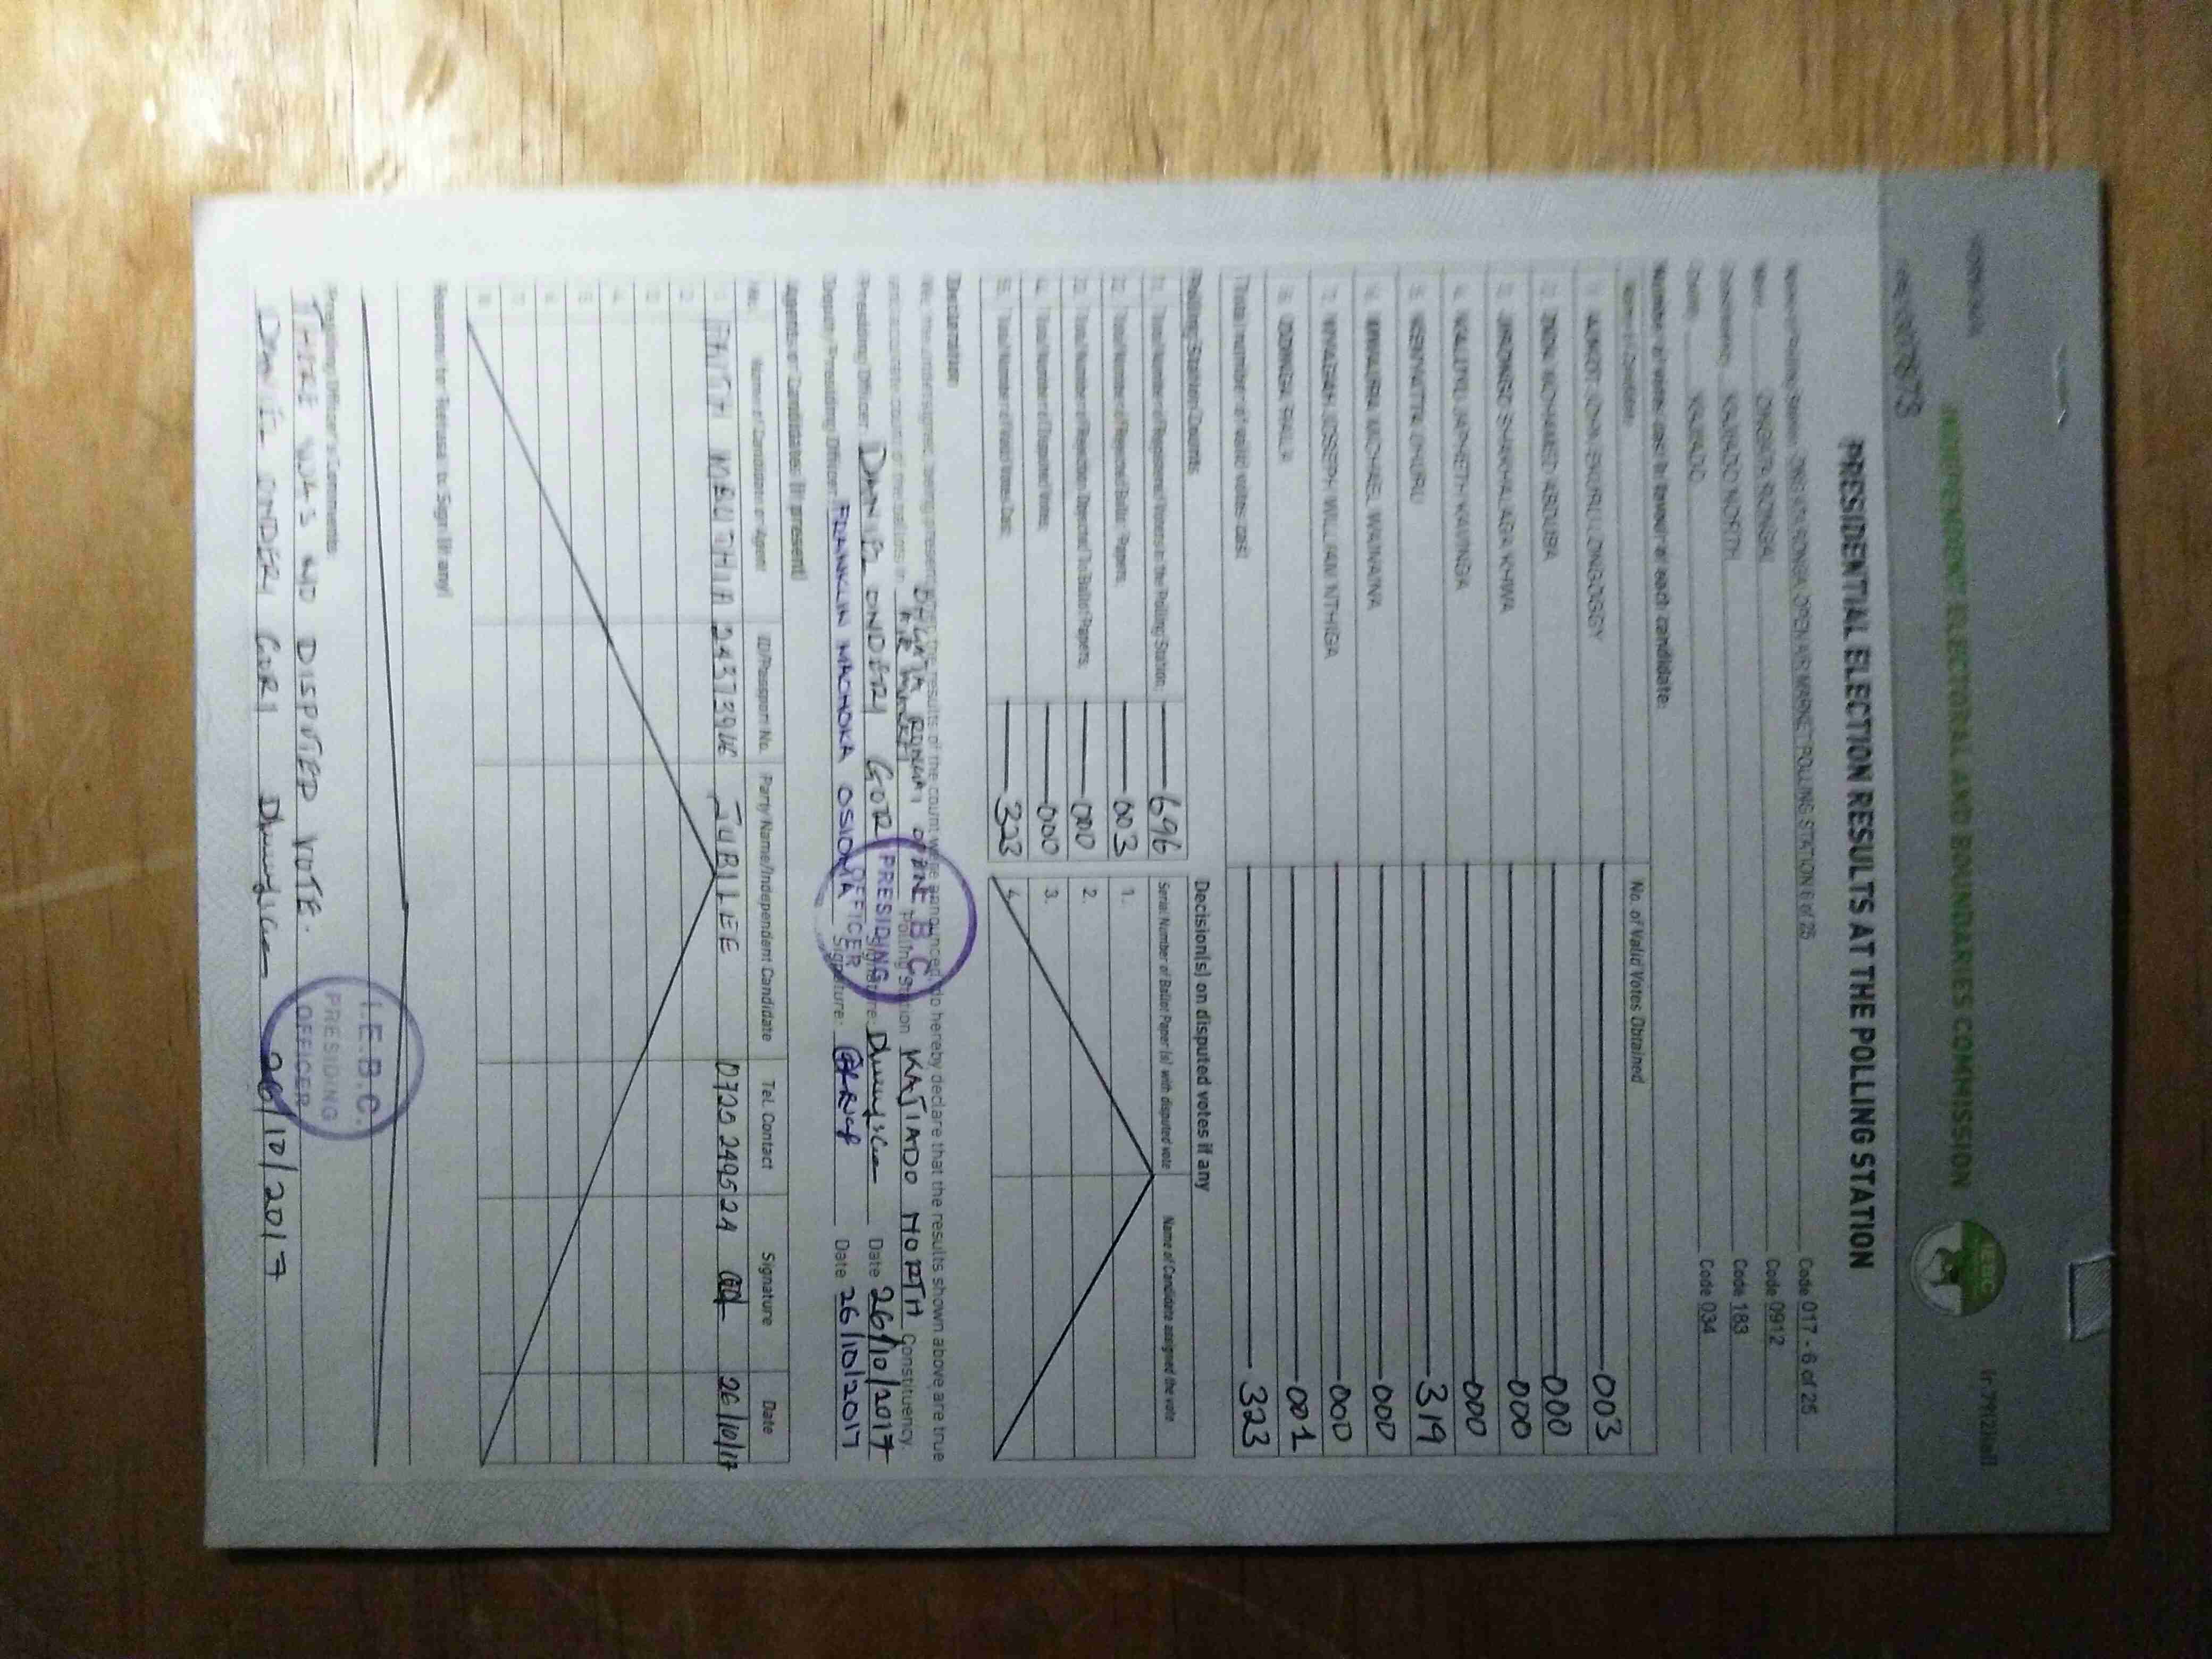 INDEPENDENT ELECTORAL AND BOUNDARIES COMMISSION
IEBC
PRESIDENTIAL ELECTION RESULTS AT THE POLLING STATION
Name of Polling Station ONGATA RONGAI OPEN AIR MARKET POLLING STATION 6 of 25 Code 017 - 6 of 25
Ward ONGATA RONGAI Code 0912
Constituency KAJIADO NORTH Code 183
County KAJIADO Code 034
Number of votes cast in favour of each candidate:
Name of Candidate No. of Valid Votes Obtained
1. AUKOT JOHN EKURU LONGOGGY 003
2. DIDA MOHAMED ABDUBA 000
3. JIRONGO SHAKHALAGA KHWA 000
4. KALUYU JAPHETH KAVINGA 000
5. KENYATTA UHURU 319
6. MWAURA MICHAEL WAINAINA 000
7. NYAGAH JOSEPH WILLIAM NTHIGA 000
8. ODINGA RAILA 001
Total number of valid votes cast 323
Polling Station Counts
1. Total Number of Registered Voters in the Polling Station: 696
2. Total Number of Rejected Ballot Papers: 003
3. Total Number of Rejection Objected To Ballot Papers: 000
4. Total Number of Disputed Votes: 000
5. Total Number of Valid Votes Cast: 323
Decision(s) on disputed votes if any
Serial Number of Ballot Paper (s) with disputed vote Name of Candidate assigned the vote
1.
2.
3.
4.
Declaration
We, the undersigned, being present when the results of the count were announced, do hereby declare that the results shown above are true
and accurate count of the ballots in Polling Station KAJIADO NORTH Constituency.
Presiding Officer: DANIEL ONDERI GORI Signature: Date 26/10/2017
Deputy Presiding Officer: FRANKLIN MACHOKA OSIOMA Signature: Date 26/10/2017
I.E.B.C.
PRESIDING
OFFICER
Agents or Candidates (if present)
No. Name of Candidate or Agent ID/Passport No. Party Name/Independent Candidate Tel. Contact Signature Date
1. JUBILEE 26/10/17
2.
3.
4.
5.
6.
7.
8.
Reasons for Refusal to Sign (if any)
Presiding Officer's Comments
THERE WAS NO DISPUTED VOTE.
DANIEL ONDERI GORI 26/10/2017
I.E.B.C.
PRESIDING
OFFICER